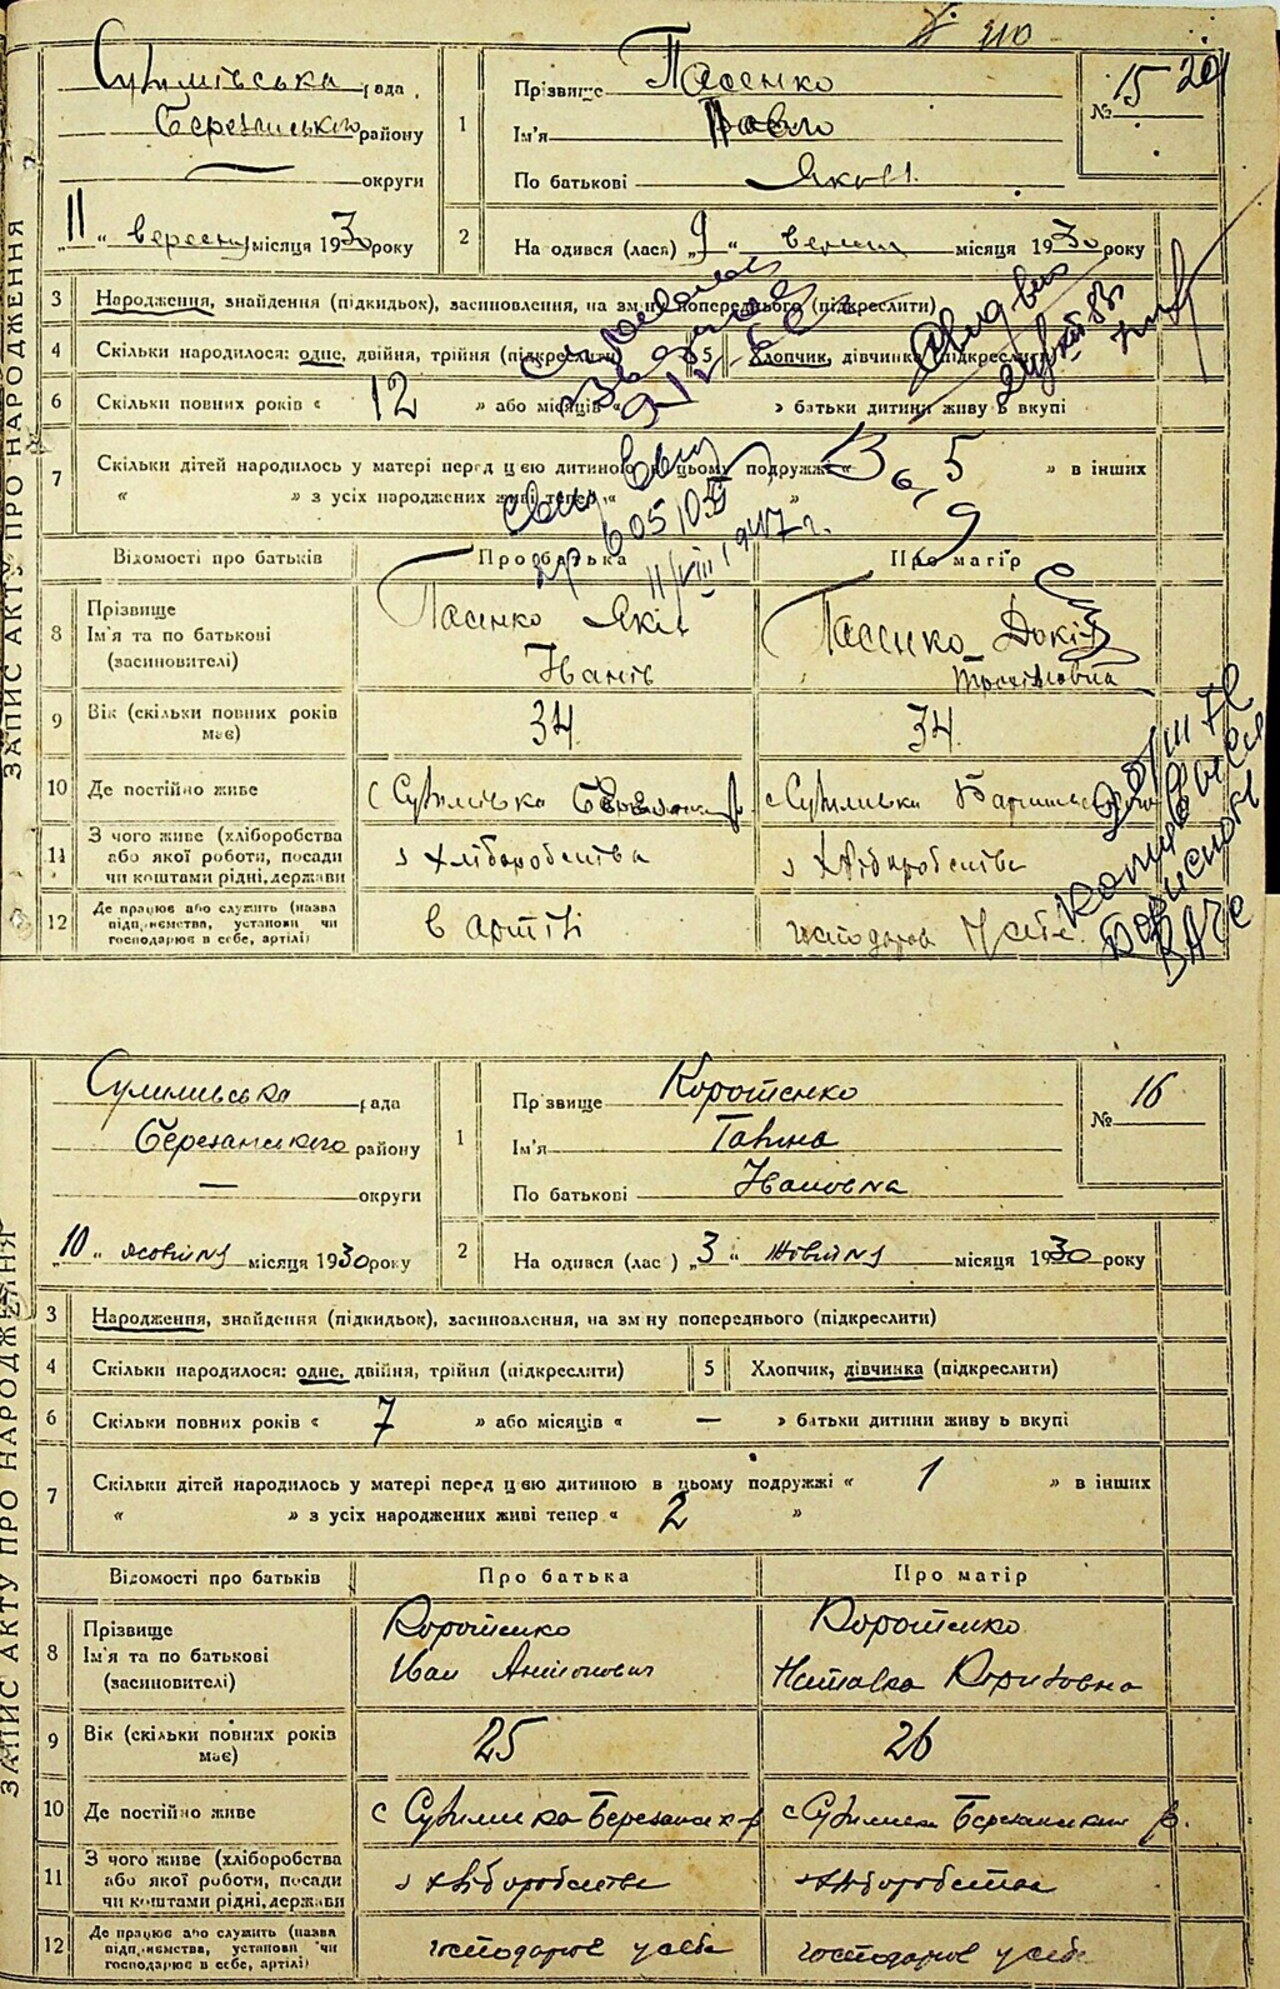 № 310
ЗАПИС АКТУ ПРО НАРОДЖЕННЯ
Сулимівська рада
Березанського району
— округи
„11“ вересня місяця 1930 року
1
Прізвище Пасенко
Ім'я Павло
По батькові Яков.
№ 15
2
На одився (лася) „9“ місяця 1930 року
3 Народження, знайдення (підкидьок), засиновлення, на зм ну попереднього (підкреслити)
4 Скільки народилося: одне, двійня, трійня (підкреслити) 5 Хлопчик, дівчинка (підкреслити)
6 Скільки повних років « 12 » або місяців « » батьки дитини живу ь вкупі
7 Скільки дітей народилось у матері перед цією дитиною в цьому подружжі « 5 » в інших
« » з усіх народжених живі тепер « »
605103
11/VIII 1947 г.
Відомості про батьків Про батька Про матір
8 Прізвище
Ім'я та по батькові
(засиновителі)
Пасенко Яків
Іванів
Пасенко Докія
9 Вік (скільки повних років має) 34 34.
10 Де постійно живе с Сулимівка с Сулимівка
11 З чого живе (хліборобства або якої роботи, посади чи коштами рідні, держави з хліборобства з хліборобства
12 Де працює або служить (назва підприємства, установи чи господарює в себе, артілі) в артілі господарює у себе.
ЗАПИС АКТУ ПРО НАРОДЖЕННЯ
Сулимівська рада
Березанського району
— округи
„10“ жовтня місяця 1930 року
1
Пр звище Коротенко
Ім'я Галина
По батькові Івановна
№ 16
2
На одився (лас ) „3“ жовтня місяця 1930 року
3 Народження, знайдення (підкидьок), засиновлення, на зм ну попереднього (підкреслити)
4 Скільки народилося: одне, двійня, трійня (підкреслити) 5 Хлопчик, дівчинка (підкреслити)
6 Скільки повних років « 7 » або місяців « — » батьки дитини живу ь вкупі
7 Скільки дітей народилось у матері перед цією дитиною в цьому подружжі « 1 » в інших
« » з усіх народжених живі тепер « 2 »
Відомості про батьків Про батька Про матір
8 Прізвище
Ім'я та по батькові
(засиновителі)
Коротенко
Иван Антонович
Коротенко
Наталка
9 Вік (скільки повних років має) 25 26
10 Де постійно живе с Сулимівка с Сулимівка
11 З чого живе (хліборобства або якої роботи, посади чи коштами рідні, держави з хліборобства з хліборобства
12 Де працює або служить (назва підприємства, установи чи господарює в себе, артілі) господарює у себе господарює у себе